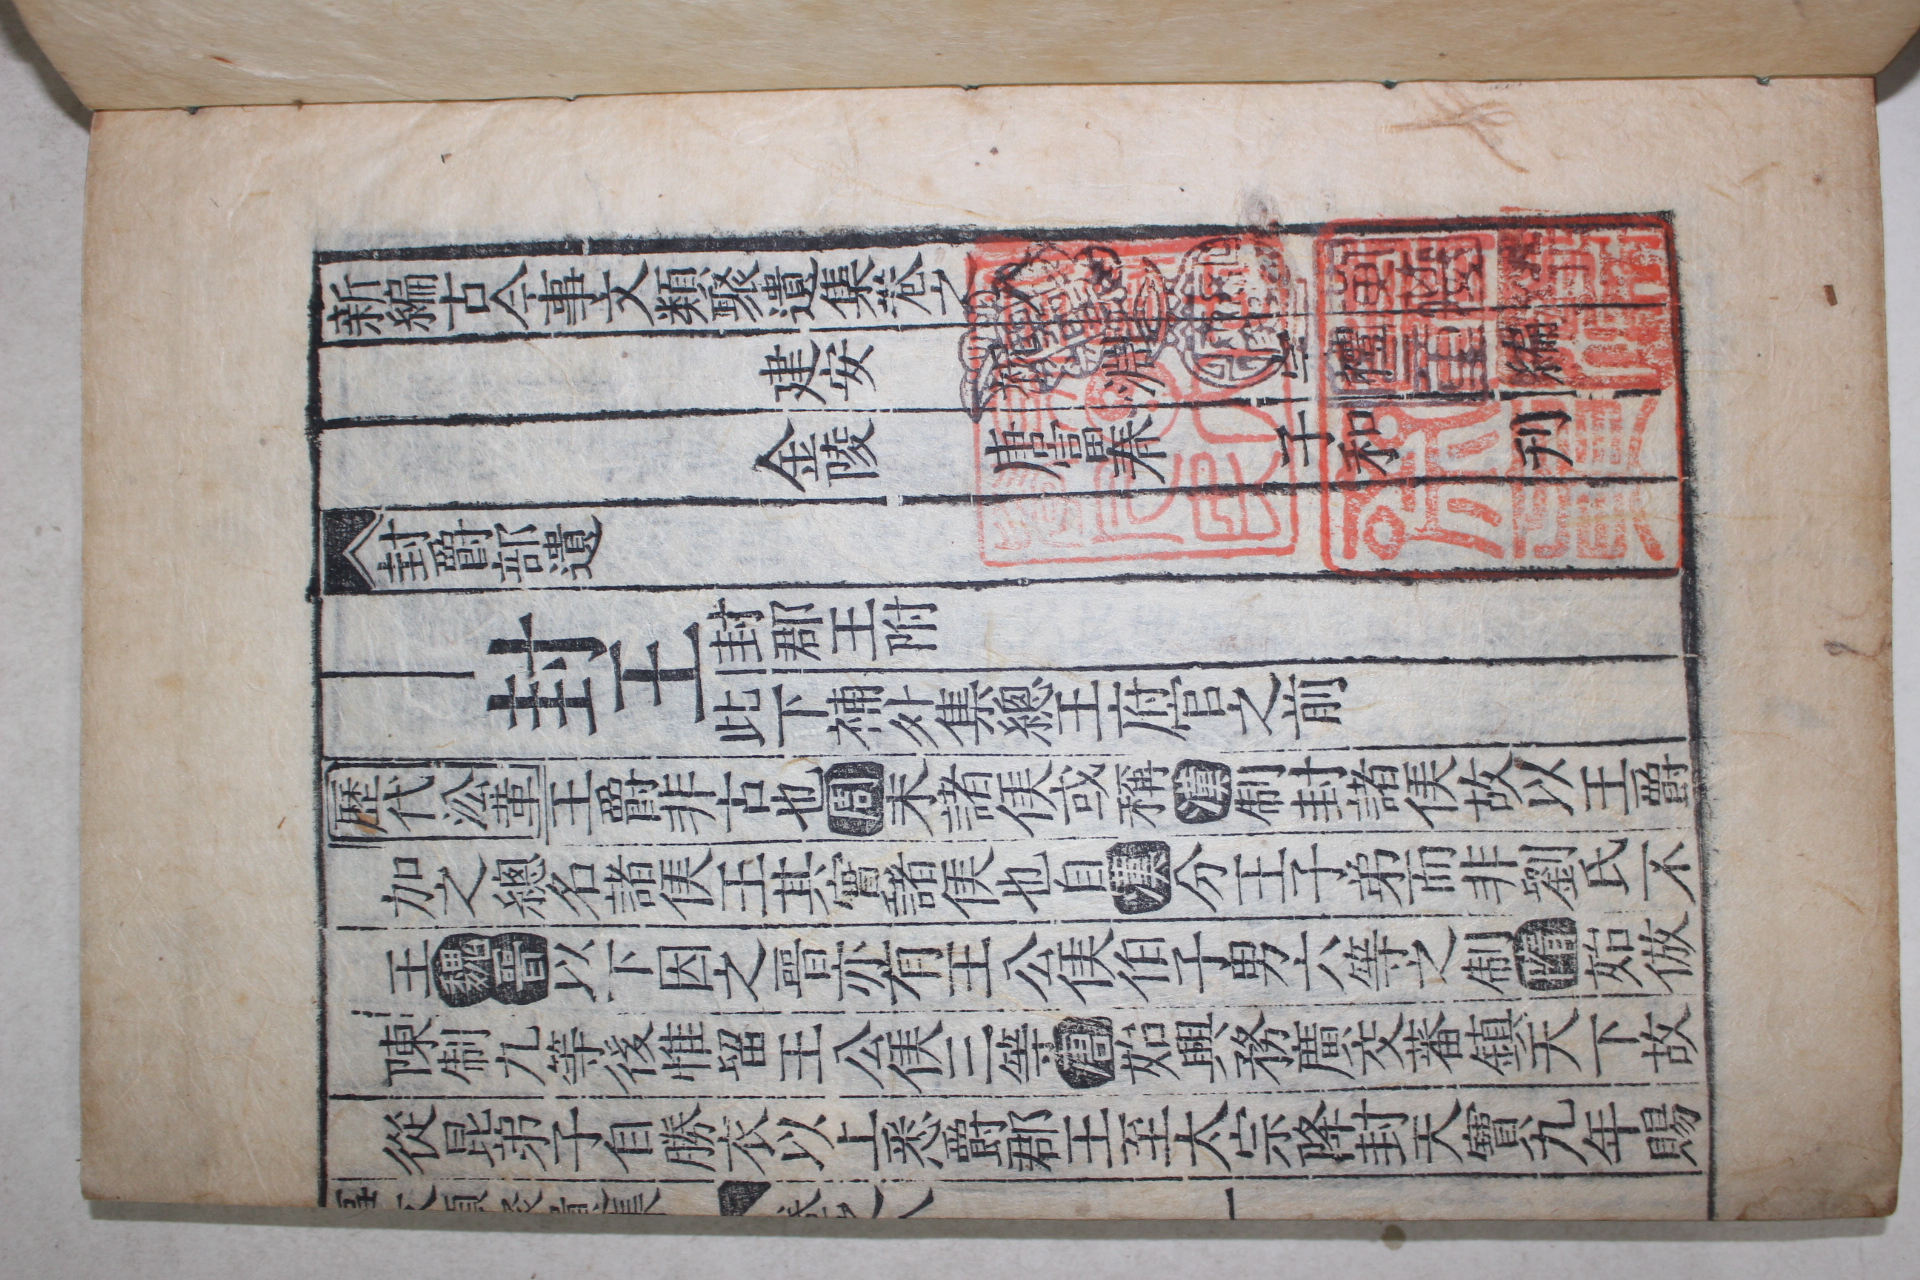 新編古今事文類聚遺集卷之八
建安 祝淵 宗禮 編
金陵 唐富春 子和 刊
封爵部遺
封王
封郡王附
此下補外集總王府官之前
歷代沿革王爵非古也周末諸侯或稱漢制封諸侯故以王爵
加之總名諸侯王其實諸侯也自漢分王子弟而非劉氏不
王魏晉以下因之晉亦有王公侯伯子男六等之制隋始倣
陳制九等後惟留王公侯三等唐始興務廣交蕃鎮天下故
從昆弟子自勝衣以上悉爵郡王至太宗降封天寶九年賜
事文類聚遺集 卷之八 一